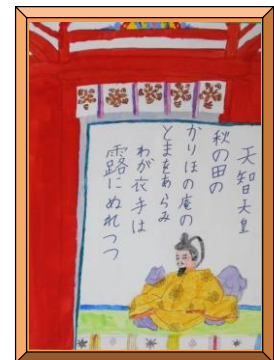 天智天皇
秋の田の
かりほの庵の
とまをあらみ
わが衣手は
露にぬれつつ